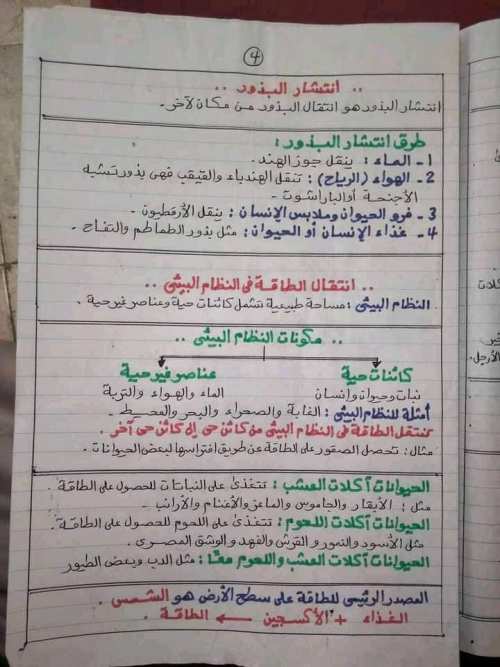 ٤
.. انتشار البذور ..
انتشار البذور هو انتقال البذور من مكان لآخر.
طرق انتشار البذور:
1- الماء: ينقل جوز الهند.
2- الهواء (الرياح): تنقل الهندباء والقيقب فهى بذور تشبه
الأجنحة أو الباراشوت.
3- فرو الحيوان وملابس الإنسان: ينقل الأرقطيون.
4- غذاء الإنسان أو الحيوان: مثل بذور الطماطم والتفاح.
.. انتقال الطاقة فى النظام البيئى ..
النظام البيئى: مساحة طبيعية تشمل كائنات حية وعناصر غير حية.
.. مكونات النظام البيئى ..
كائنات حية عناصر غير حية
نبات وحيوان وإنسان الماء والهواء والتربة
أمثلة للنظام البيئى: الغابة والصحراء والبحر والمحيط.
تنتقل الطاقة فى النظام البيئى من كائن حى إلى كائن حى آخر.
مثال: تحصل الصقور على الطاقة عن طريق افتراسها لبعض الحيوانات.
الحيوانات آكلات العشب: تتغذى على النباتات للحصول على الطاقة.
مثل: الأبقار والجاموس والماعز والأغنام والأرانب.
الحيوانات آكلات اللحوم: تتغذى على اللحوم للحصول على الطاقة.
مثل الأسود والنمور والقرش والفهد والوشق المصرى.
الحيوانات آكلات العشب واللحوم معًا: مثل الدب وبعض الطيور
المصدر الرئيسى للطاقة على سطح الأرض هو الشمس.
الغذاء + الأكسجين ← الطاقة.